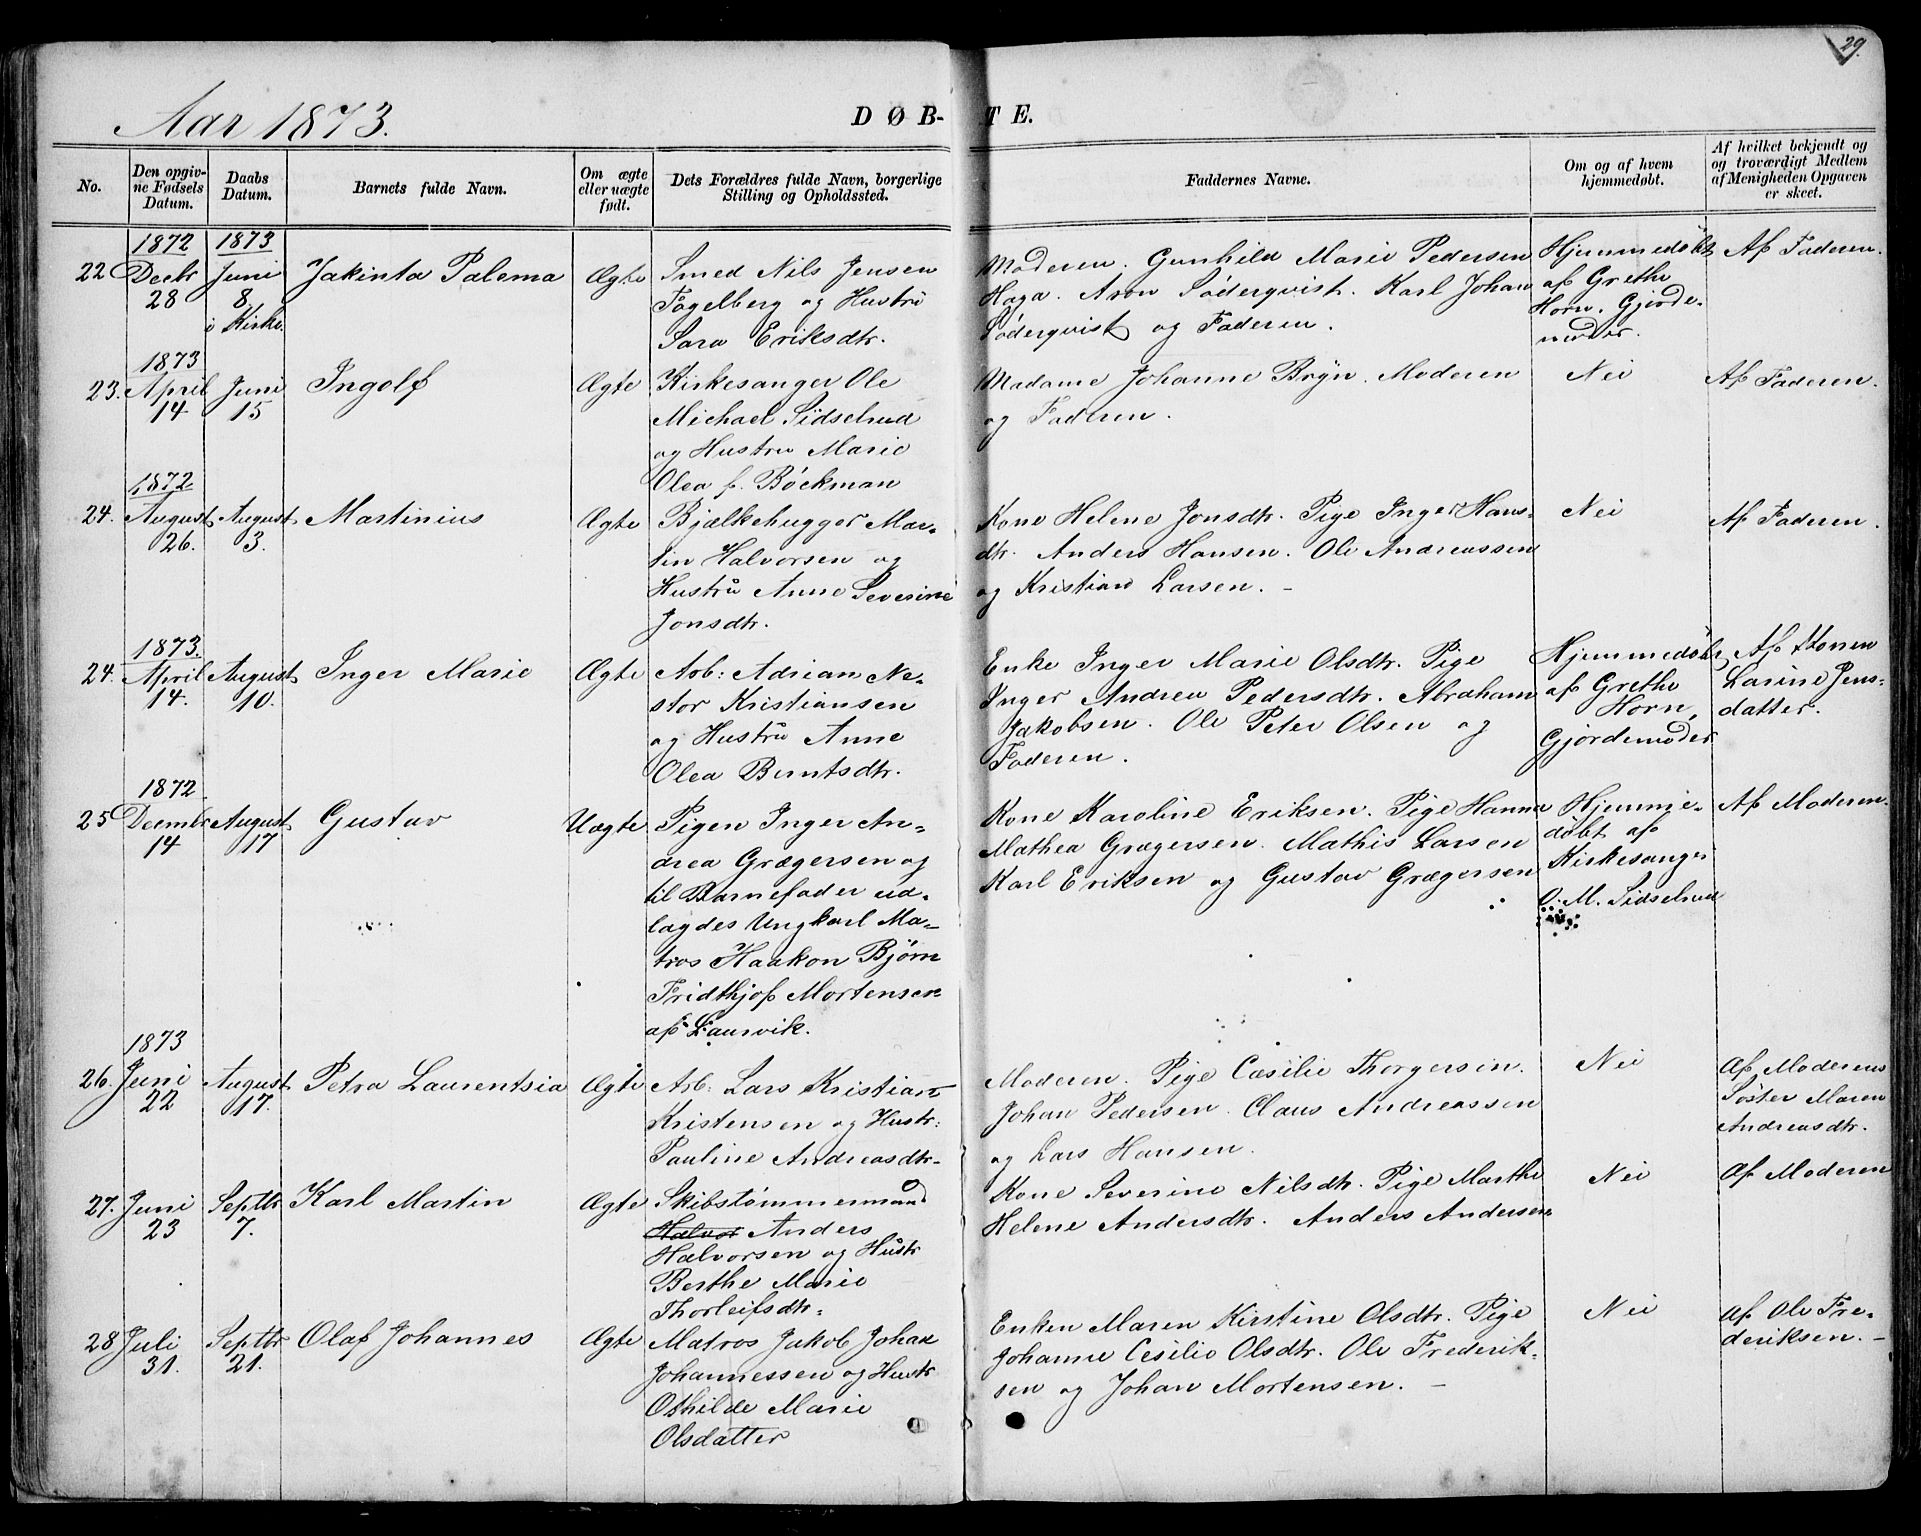 29.
Aar 1873.
DØB-TE.
No.
Den opgiv-
ne Fødsels
Datum.
Daabs
Datum.
Barnets fulde Navn.
Om ægte
eller uægte
født.
Dets Forældres fulde Navn, borgerlige
Stilling og Opholdssted.
Faddernes Navne.
Om og af hvem
hjemmedøbt.
Af hvilket bekjendt og
og troværdigt Medlem
af Menigheden Opgaven
er skeet.
22
1872
Decbr
28
1873
Juni
8
i Kirke.
Jakinta Palema
Ægte
Smed Nils Jensen
Fogelberg og Hustru
Sara Eriksdtr.
Moderen. Gunhild Marie Pedersen
Haga. Aron Söderqvist. Karl Johan
Söderqvist og Faderen.
Hjemmedøbt
af Grethe
Horn. Gjorde-
moder.
Af Faderen.
23.
1873
April
14
Juni
15
Ingolf
Ægte
Kirkesanger Ole
Michael Sidselrud
og Hustru Marie
Olea f. Böckman
Madame Johanne Bryn. Moderen
og Faderen.
Nei
Af Faderen.
24.
1872
August
26.
August
3.
Martinius
Ægte
Bjælkehugger Mar-
tin Halvorsen og
Hustru Anne Severine
Jonsdtr.
Kone Helene Jonsdtr. Pige Inger Hans-
dtr. Anders Hansen. Ole Andreassen
og Kristian Larsen. –
Nei
Af Faderen.
24.
1873.
April
14.
August
10.
Inger Marie
Ægte
Arb: Adrian Ne-
stor Kristiansen
og Hustru Anne
Olea Berntsdtr.
Enke Inger Marie Olsdtr. Pige
Inger Andrea Pedersdtr. Abraham
Jakobsen. Ole Peter Olsen og
Faderen.
Hjemmedøbt
af Grethe
Horn,
Gjordemoder
Af Konen
Larine Jens-
datter.
25
1872
Decmbr
14
August
17
Gustav
Uægte
Pigen Inger An-
drea Grægersen og
til Barnefader ud-
lagdes Ungkarl Ma-
tros Haakon Bjørn
Fridthjof Mortensen
af Laurvik.
Kone Karoline Eriksen. Pige Hanna
Mathea Grægersen. Mathis Larsen
Karl Eriksen og Gustav Grægersen
Hjemme-
døbt af
Kirkesanger
O. M. Sidselrud
Af Moderen.
26.
1873
Juni
22
August
17.
Petra Laurentsia
Ægte
Arb: Lars Kristian
Kristensen og Hustr:
Pauline Andreasdtr.
Moderen. Pige Cæsilie Thorgersin.
Johan Pedersen. Claus Andreassen
og Lars Hansen.
Nei
Af Moderens
Søster Maren
Andreasdtr.
27.
Juni
23
Septbr
7.
Karl Martin
Ægte
Skibstømmermand
Halvor Anders
Halvorsen og Hustr
Berthe Marie
Thorleifsdtr.
Kone Severine Nilsdtr. Pige Marthe
Helene Andersdtr. Anders Andersen
Nei
Af Moderen
28
Juli
31.
Septbr
21.
Olaf Johannes
Ægte
Matros Jakob Johan
Johannessen og Hustr
Othilde Marie
Olsdatter
Enken Maren Kirstine Olsdtr. Pige
Johanne Cesilie Olsdtr. Ole Frederik-
sen og Johan Mortensen. –
Nei
Af Ole Fre-
deriksen. –